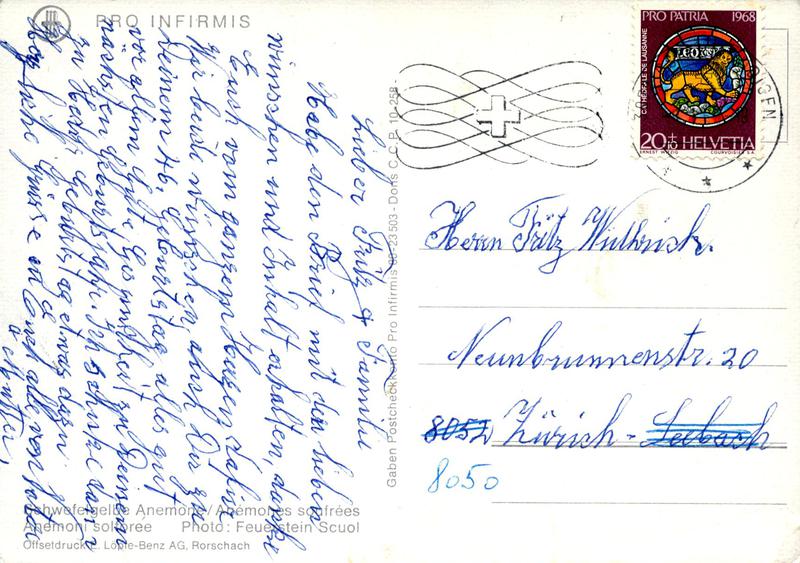 PRO INFIRMIS
Lieber Fritz & Familie
Habe den Brief mit den lieben
wünschen und Inhalt erhalten, danke
Euch vom ganzen Herzen dafür.
Wir beide wünschen, auch Dir zu
Deinem 46. Geburtstag alles gut
vor allem gute Gesundheit in Deinem
nächsten Lebensjahr. Ich schicke dann
zu Georgs Geburtstag etwas dazu.
Herzl. liebe Grüsse an Euch alle von Vater
& Mutter.
Schwefelgelbe Anemone / Anémones soufrées
Anemoni solforee Photo: Feuerstein Scuol
Offsetdruck E. Löpfe-Benz AG, Rorschach
Gaben Postcheckkonto Pro Infirmis 80-23503 - Dons C.C.P. 10-258
PRO PATRIA 1968
CATHEDRALE DE LAUSANNE
LEO
20+10 HELVETIA
ERNEST WITZIG COURVOISIER S.A.
Herrn Fritz Wüthrich.
Neunbrunnenstr. 20
8052 Zürich-Seebach
8050